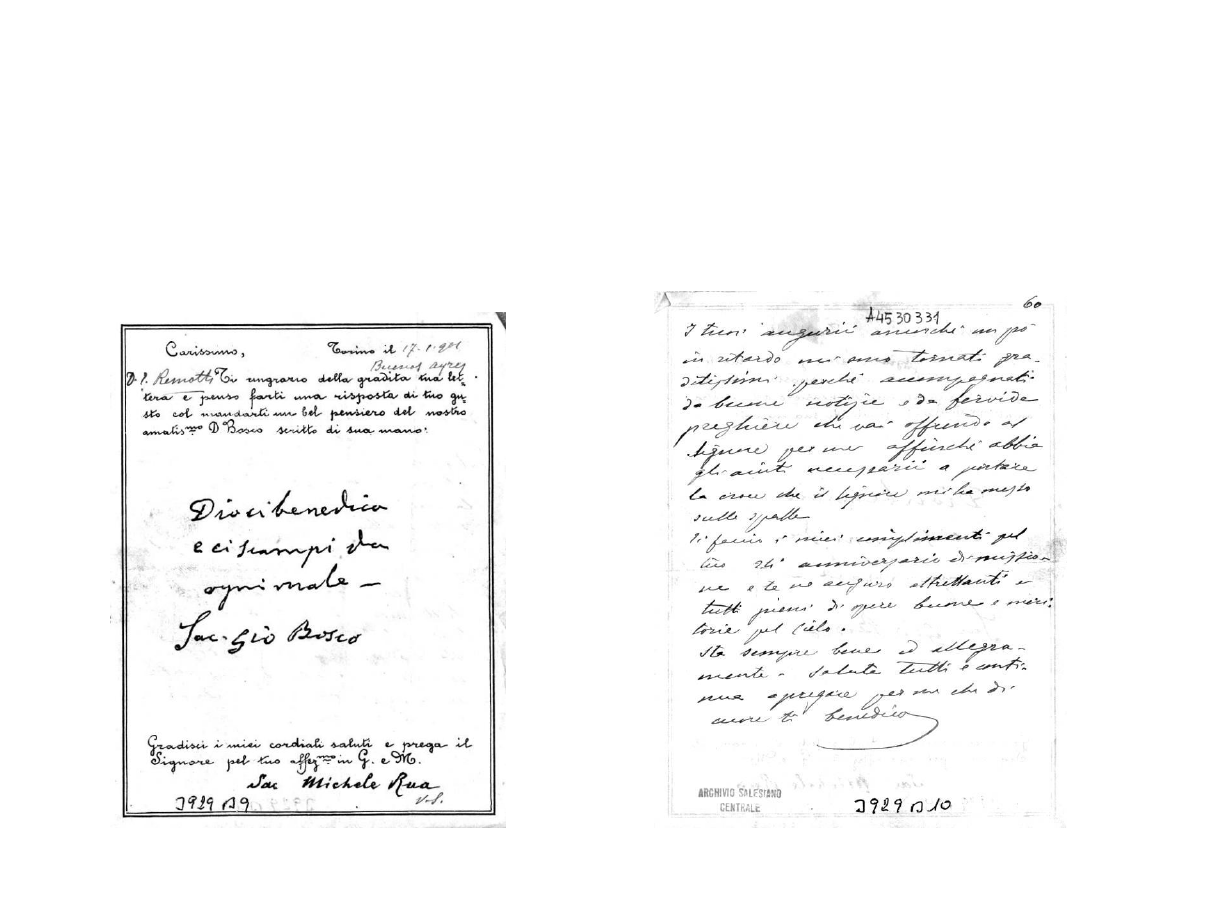 Carissimo, Torino il 17-1-901
Buenos Ayres
D. S. Remotti Ti ringrazio della gradita tua let-
tera e penso farti una risposta di tuo gu-
sto col mandarti un bel pensiero del nostro
amatis.mo D Bosco scritto di sua mano:
Dio ci benedica
e ci scampi da
ogni male –
Sac. Gio Bosco
Gradisci i miei cordiali saluti e prega il
Signore pel tuo affez.mo in G. e M.
Sac Michele Rua
V.S.
3929 B 9
60
A4530331
I tuoi augurii ancorché un pó
in ritardo mi sono tornati gra-
ditissimi perché accompagnati
da buone notizie e da fervide
preghiere che vai offrendo al
Signore per me affinché abbia
gli aiuti necessarii a portare
la croce che il Signore mi ha messo
sulle spalle
Ti faccio i miei complimenti pel
tuo anniversario di missio-
ne e te ne auguro altrettanti e
tutti pieni di opere buone e meri-
torie pel Cielo.
Sta sempre bene ed allegra-
mente. Saluta tutti e conti-
nua a pregare per me che di
cuore ti benedico
ARCHIVIO SALESIANO
CENTRALE
3929 B 10